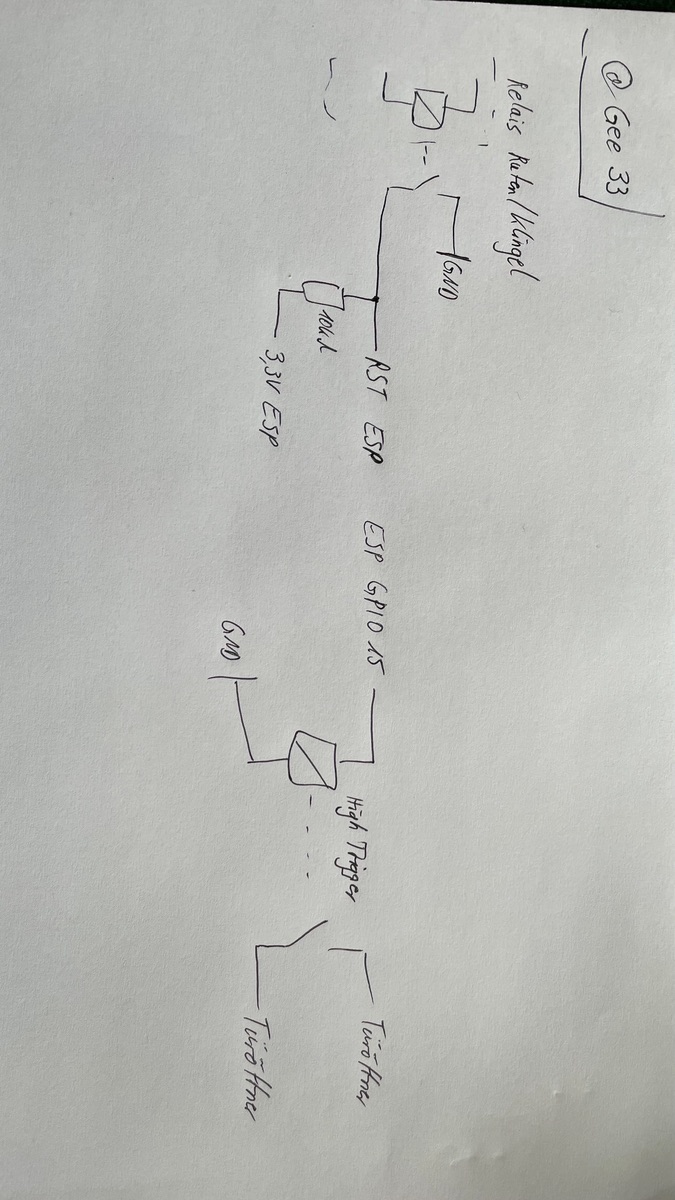 @ Gee 33
Relais Rufen/Klingel
GND
RST ESP
10kΩ
3,3V ESP
ESP GPIO 15
GND
High Trigger
Türöffner
Türöffner